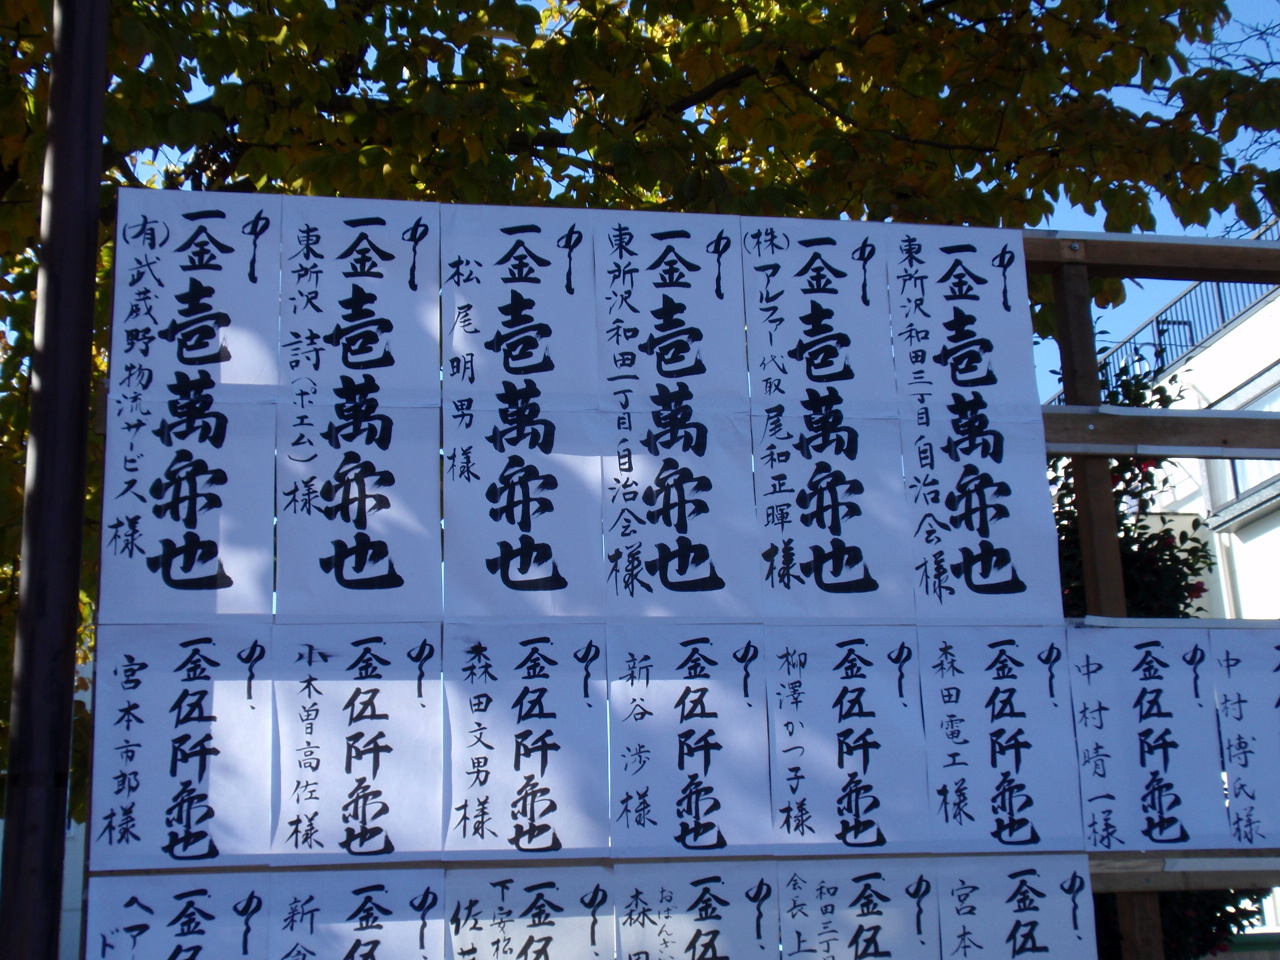 一金壱萬円也
東所沢和田三丁目自治会様
一金壱萬円也
(株)アルファー代取 尾和正暉様
一金壱萬円也
東所沢和田一丁目自治会様
一金壱萬円也
松尾明男様
一金壱萬円也
東所沢 詩(ポエム)様
一金壱萬円也
(有)武蔵野物流サービス様
中村博氏様
一金伍阡円也
中村晴一様
一金伍阡円也
森田電工様
一金伍阡円也
柳澤かつ子様
一金伍阡円也
新谷渉様
一金伍阡円也
森田文男様
一金伍阡円也
小木曽高佐様
一金伍阡円也
宮本市郎様
一金伍
宮本
一金伍
和田三丁目
会長 上
一金伍
おばんざい
森田
一金伍
下安松
佐
一金伍
新倉
一金伍
ヘアー
ド